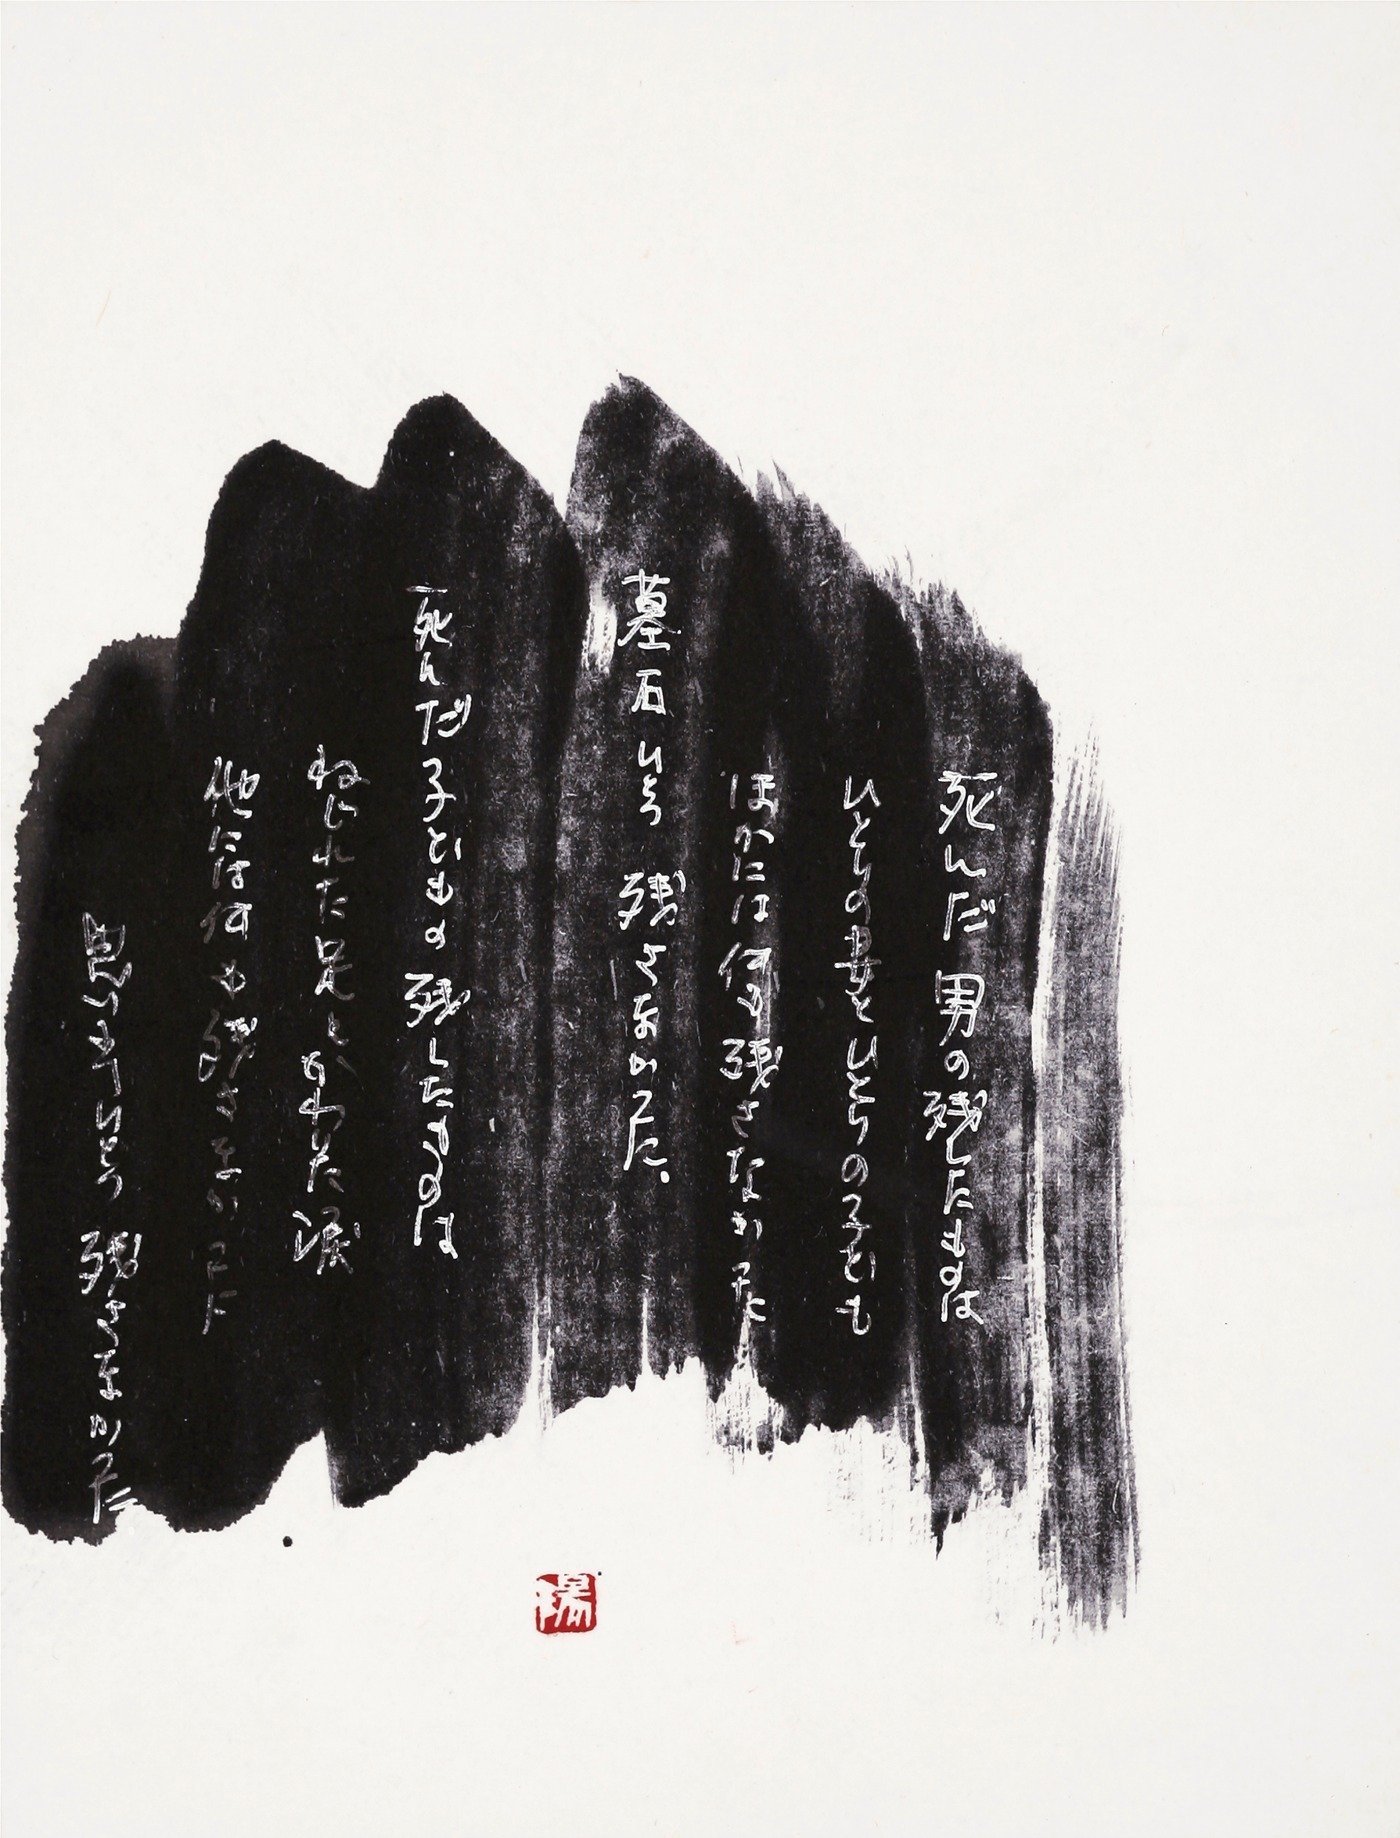 死んだ男の残したものは
ひとりの妻とひとりの子ども
ほかには何も残さなかった
墓石ひとつ 残さなかった。
死んだ子どもの残したものは
ねじれた足と、かわいた涙
他には何も残さなかった
思い出ひとつ 残さなかった
陽